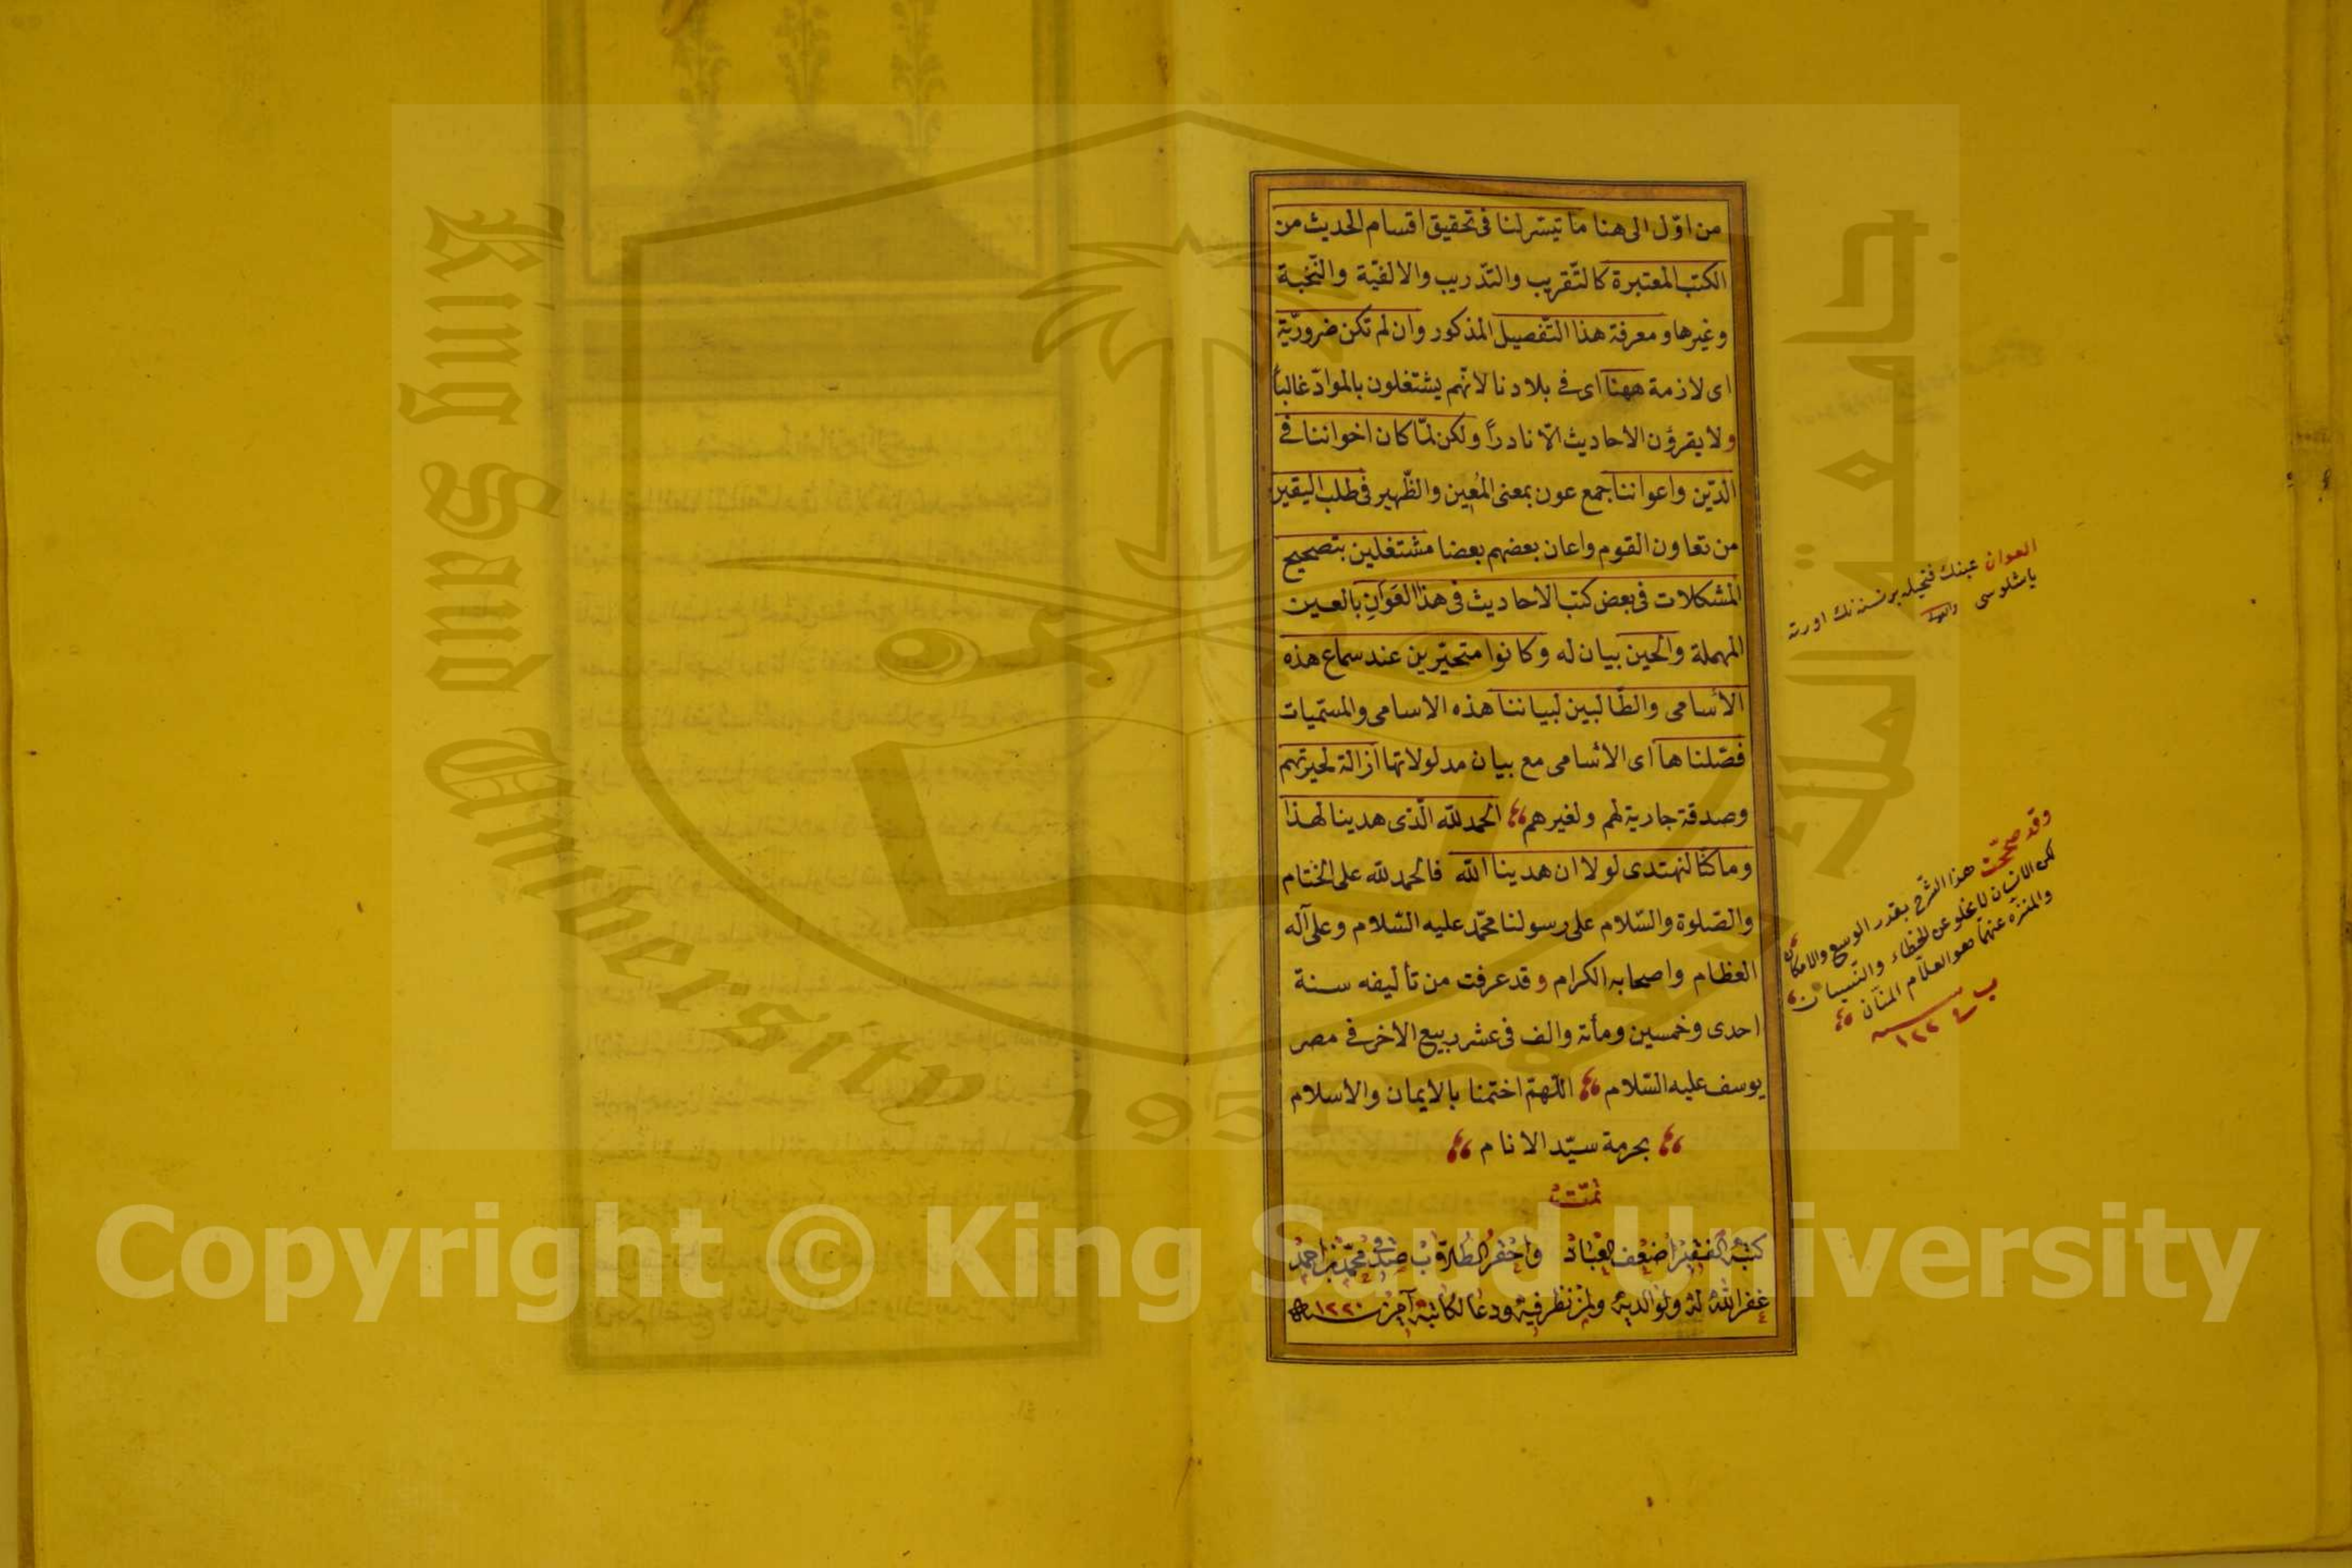 من اوّل الى هنا ما تيسّر لنا فى تحقيق اقسام الحديث من
الكتب المعتبرة كالتّقريب والتّدريب والالفيّة والنّخبة
وغيرها و معرفة هذا التّفصيل المذكور وان لم تكن ضروريّة
اى لازمة ههنا اى فى بلادنا لانّهم يشتغلون بالموادّ غالباً
ولا يقرؤن الاحاديث الّا نادراً ولكن لمّا كان اخواننا فى
الدّين واعواننا جمع عون بمعنى المُعين والظّهير فى طلب اليقين
من تعاون القوم واعان بعضهم بعضا مشتغلين بتصحيح
المشكلات فى بعض كتب الاحاديث فى هذا العَوَانِ بالعين
المهملة والحين بيان له وكانوا متحيّرين عند سماع هذه
الأسامى والطّالبين لبياننا هذه الاسامى والمسمّيات
فصّلناها اى الأسامى مع بيان مدلولاتها ازالة لحيرتهم
وصدقة جارية لهم ولغيرهم الحمد للّه الّذى هدينا لهذا
وما كنّا لنهتدى لولا ان هدينا اللّه فالحمد للّه على الختام
والصّلوة والسّلام على رسولنا محمّد عليه السّلام وعلى آله
العظام واصحابه الكرام وقد عرفت من تأليفه سنة
احدى وخمسين ومأة والف فى عشر ربيع الاخر فى مصر
يوسف عليه السّلام اللّهمّ اختمنا بالايمان والاسلام
بحرمة سيّد الانام
تمّت
كتبه الفقير اضعف العباد واحقر الطلاب محمّد بن احمد
غفر اللّه له ولوالديه ولمن نظر فيه ودعا لكاتبه آمين سنة ١٢٢٠
العوان
وقد صحّحت هذا الشّرح بقدر الوسع والامكان
لكن الانسان لا يخلو عن الخطاء والنّسيان
والمنزّه عنهما هو العلّام المنّان
سنة ١٢٢٤
King Saud University
جامعة الملك سعود
1957
Copyright © King Saud University